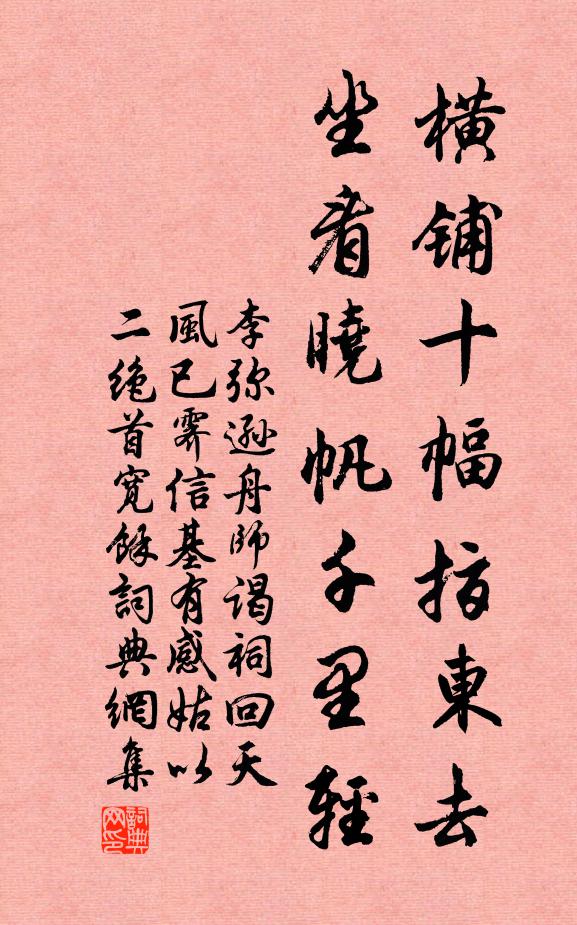 橫鋪十幅指東去
坐看曉帆千里輕
李弥遜舟師謁祠回天
風已霽信基有感姑以
二絕首寬餘詞典網集
詞典网印